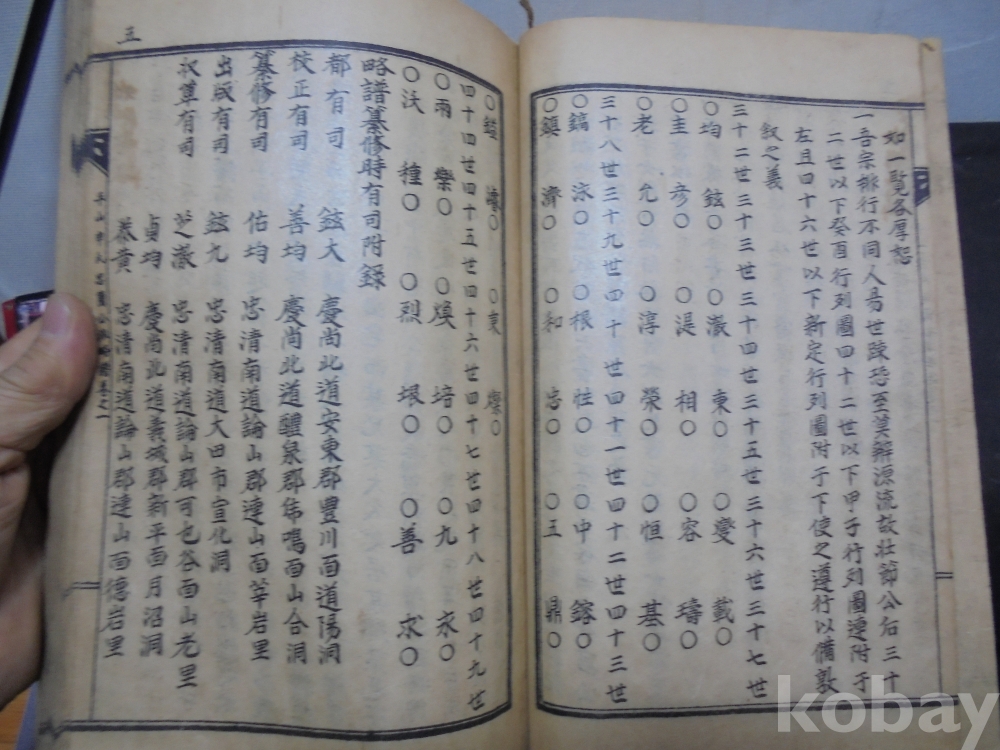 如一覽各厚恕
一吾宗排行不同人易世疎恐至莫辨源流故壯節公后三十
二世以下癸酉行列圖四十二世以下甲子行列圖遵附于
左且四十六世以下新定行列圖附于下使之遵行以備敦
叙之義
三十二世三十三世三十四世三十五世三十六世三十七世
○均 鉉○ ○澈 東○ ○燮 載○
○圭 彦○ ○湜 相○ ○容 璹○
○老 允○ ○淳 榮○ ○恒 基○
三十八世三十九世四十世四十一世四十二世四十三世
○鎬 泳○ ○根 炷○ ○中 鎔○
○鎭 濟○ ○和 忠○ ○王 鼎○
○ ○ ○東 ○
四十四世四十五世四十六世四十七世四十八世四十九世
○雨 樂○ ○煥 培○ ○九 求○
○沃 種○ ○烈 垠○ ○善 求○
略譜纂修時有司附錄
都有司 鉉大 慶尚北道安東郡豊川面道陽洞
校正有司 善均 慶尚北道醴泉郡 鳴面山合洞
纂修有司 佑均 忠清南道論山郡連山面莘岩里
出版有司 鉉九 忠清南道大田市宣化洞
收草有司 芝澈 忠清南道論山郡可也谷面山老里
貞均 慶尚北道義城郡新平面月沼洞
泰黄 忠清南道論山郡連山面德岩里
平山申氏 卷之一
三
kobay